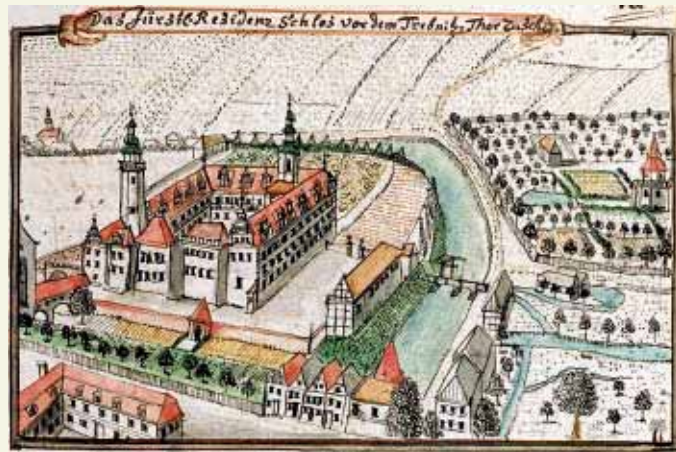 Das Fürstl. Residenz Schlos vor dem Trebnitz. Thor